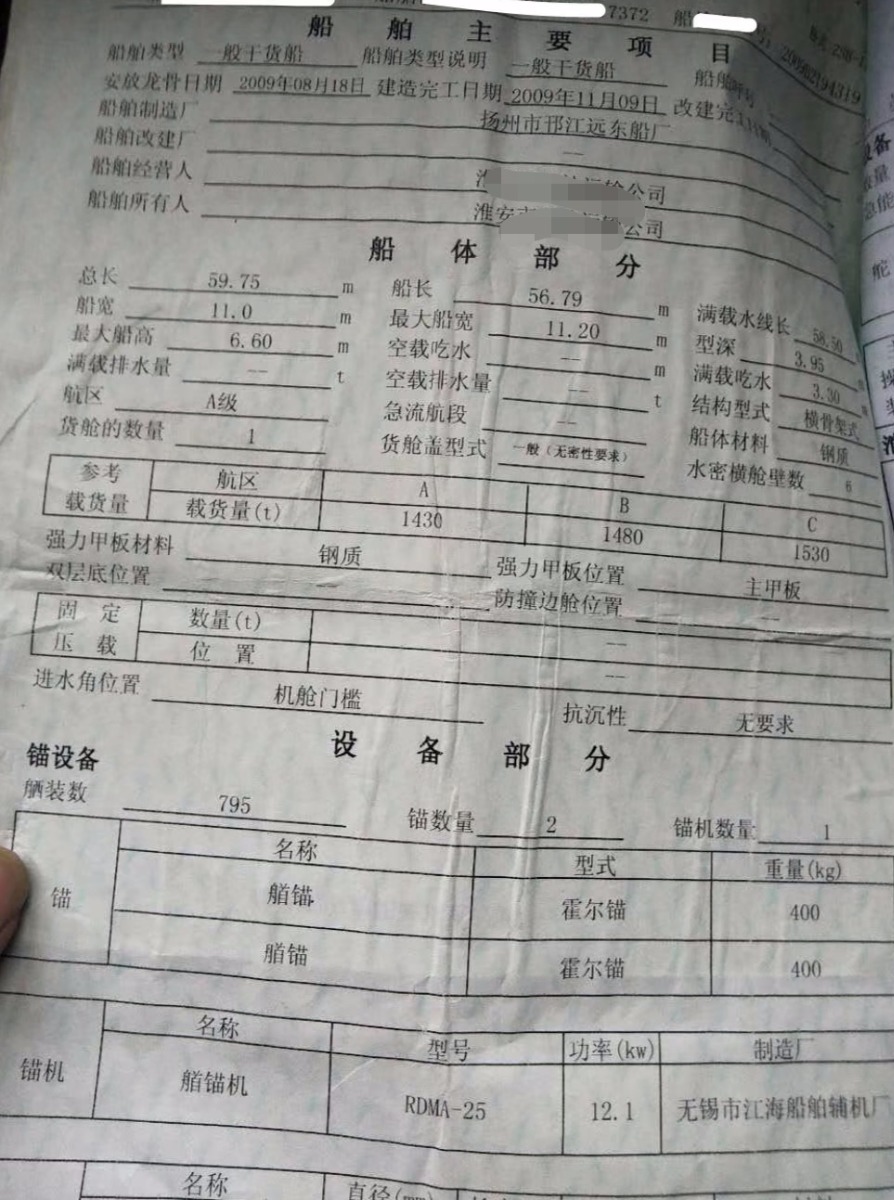 7372 船
船舶主要项目
船舶类型 一般干货船 船舶类型说明 一般干货船 船舶呼号
安放龙骨日期 2009年08月18日 建造完工日期 2009年11月09日 改建完工日期
船舶制造厂 扬州市邗江远东船厂
船舶改建厂 --
船舶经营人 运输公司
船舶所有人 淮安市 公司
船体部分
总长 59.75 m 船长 56.79 m 满载水线长 58.50
船宽 11.0 m 最大船宽 11.20 m 型深 3.95
最大船高 6.60 m 空载吃水 -- m 满载吃水 3.30
满载排水量 -- t 空载排水量 -- t 结构型式 横骨架式
航区 A级 急流航段 -- 船体材料 钢质
货舱的数量 1 货舱盖型式 一般(无密性要求) 水密横舱壁数 6
参考载货量 航区 A B C
载货量(t) 1430 1480 1530
强力甲板材料 钢质 强力甲板位置 主甲板
双层底位置 防撞边舱位置 --
固定压载 数量(t) --
位置 --
进水角位置 机舱门槛 抗沉性 无要求
设备部分
锚设备
舾装数 795 锚数量 2 锚机数量 1
锚 名称 型式 重量(kg)
艏锚 霍尔锚 400
艏锚 霍尔锚 400
锚机 名称 型号 功率(kw) 制造厂
艏锚机 RDMA-25 12.1 无锡市江海船舶辅机厂
名称 直径(mm)